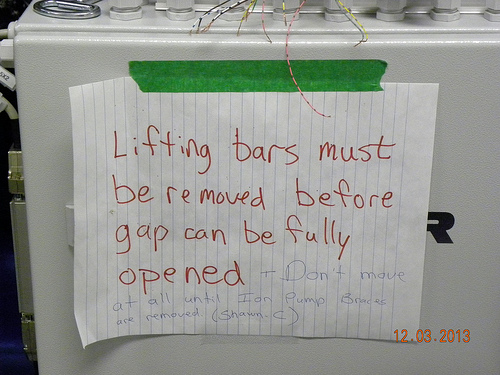 Lifting bars must
be removed before
gap can be fully
opened - Don't move
at all until Ion Pump Braces
are removed (Shawn.C)
R
12.03.2013